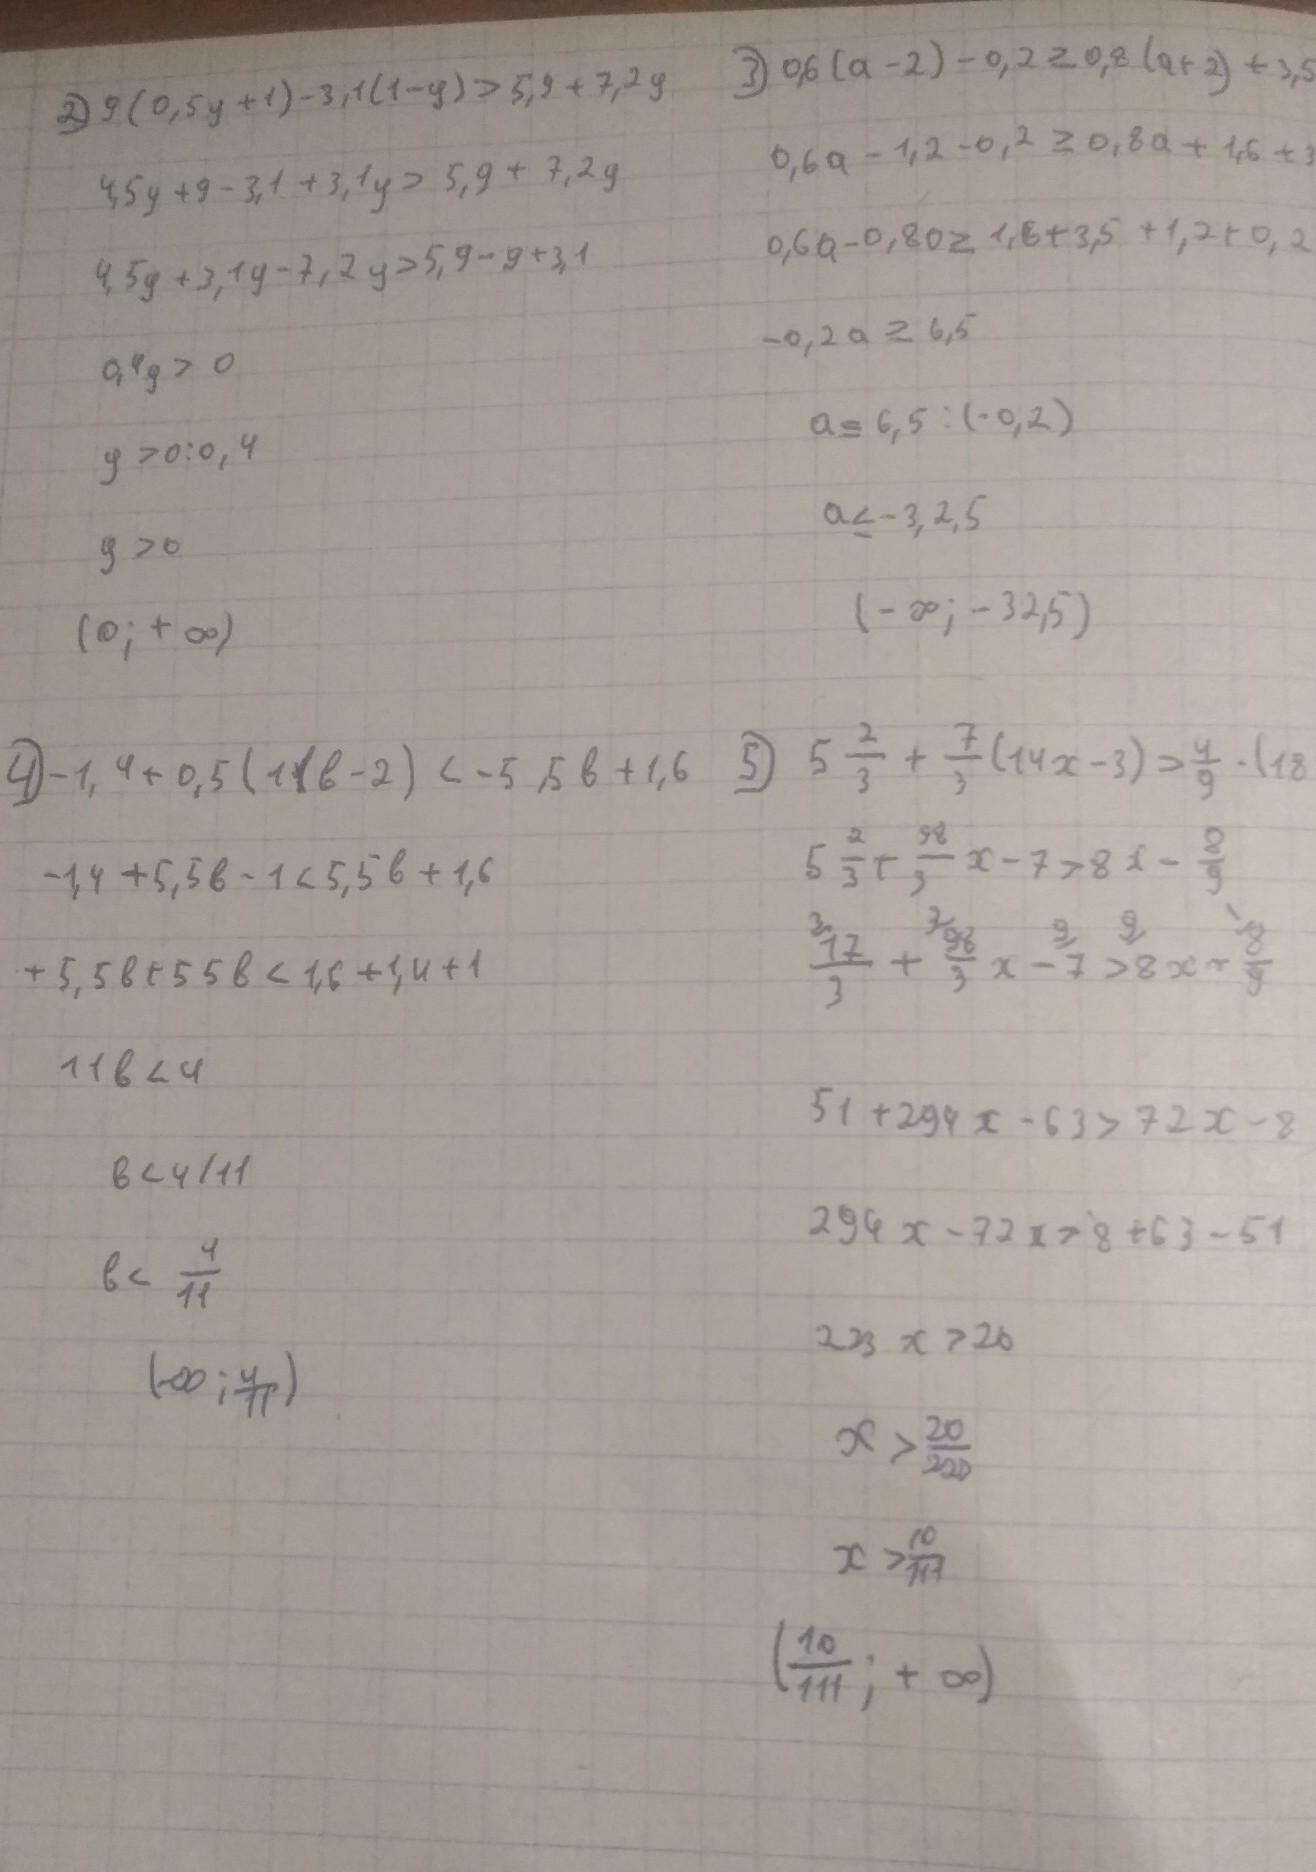 2) 9(0,5y+1)-3,1(1-y)>5,9+7,2y
4,5y+9-3,1+3,1y>5,9+7,2y
4,5y+3,1y-7,2y>5,9-9+3,1
0,4y>0
y>0:0,4
y>0
(0;+∞)
3) 0,6(a-2)-0,2≥0,8(a+2)+3,5
0,6a-1,2-0,2≥0,8a+1,6+3
0,6a-0,8a≥1,6+3,5+1,2+0,2
-0,2a≥6,5
a≤6,5:(-0,2)
a≤-3,2,5
(-∞;-32,5)
4) -1,4+0,5(11b-2)<-5,5b+1,6
-1,4+5,5b-1<5,5b+1,6
+5,5b+55b<1,6+1,4+1
11b<4
b<4/11
b<4/11
(-∞;4/11)
5) 5 2/3+7/3(14x-3)>4/9·(18
5 2/3+98/3x-7>8x-8/9
17/3+98/3x-7>8x-8/9
51+294x-63>72x-8
294x-72x>8+63-51
x>20/220
(10/111;+∞)